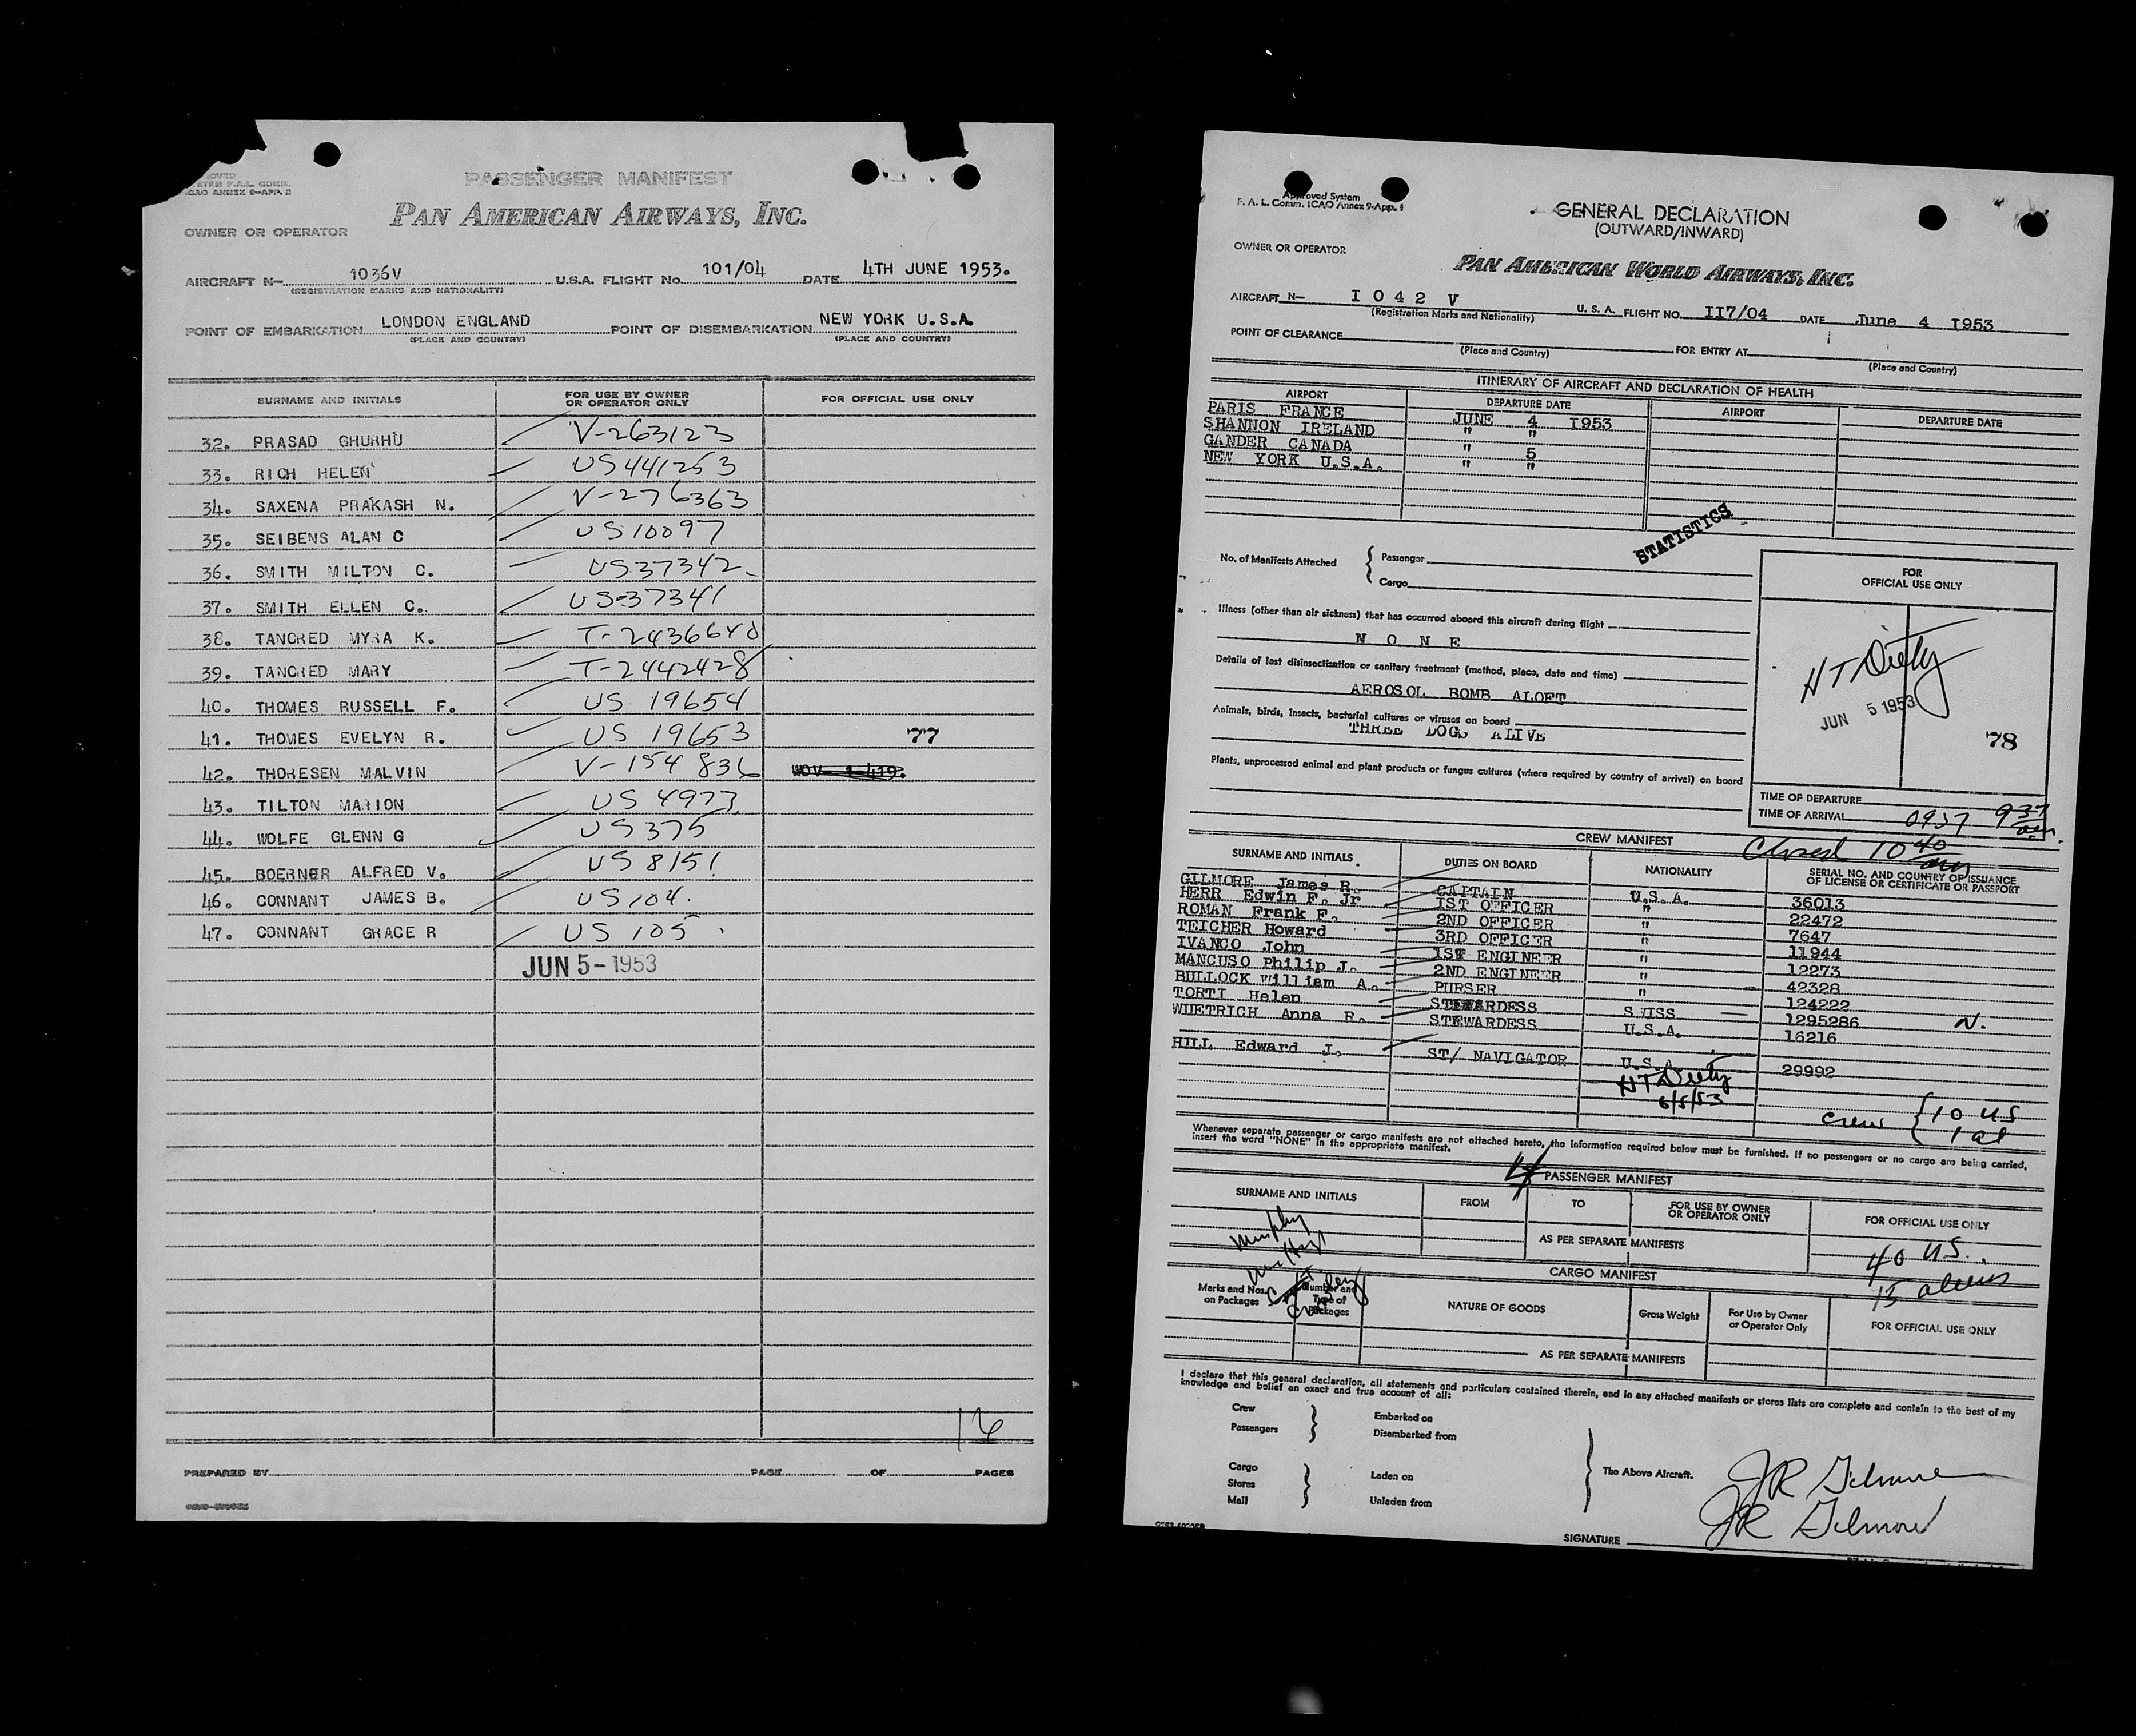 PASSENGER MANIFEST
SYSTEM F.A.L. COMM.
ICAO ANNEX 9-APP. 2
PAN AMERICAN AIRWAYS, INC.
OWNER OR OPERATOR
AIRCRAFT N- 1036V U.S.A. FLIGHT No. 101/04 DATE 4TH JUNE 1953.
(REGISTRATION MARKS AND NATIONALITY)
POINT OF EMBARKATION LONDON ENGLAND POINT OF DISEMBARKATION NEW YORK U.S.A.
(PLACE AND COUNTRY) (PLACE AND COUNTRY)
SURNAME AND INITIALS FOR USE BY OWNER OR OPERATOR ONLY FOR OFFICIAL USE ONLY
32. PRASAD GHURHU V-263123
33. RICH HELEN US 441253
34. SAXENA PRAKASH N. V-276363
35. SEIBENS ALAN C US 10097
36. SMITH MILTON C. US 37342
37. SMITH ELLEN C. US-37341
38. TANCRED MYRA K. T-2436640
39. TANCRED MARY T-2442428
40. THOMES RUSSELL F. US 19654
41. THOMES EVELYN R. US 19653 77
42. THORESEN MALVIN V-154836
43. TILTON MARION US 4973
44. WOLFE GLENN G US 375
45. BOERNER ALFRED V. US 8151
46. CONNANT JAMES B. US 104.
47. CONNANT GRACE R US 105
JUN 5-1953
16
PREPARED BY PAGE OF PAGES
Approved System
F. A. L. Comm. ICAO Annex 9-App. 1
GENERAL DECLARATION
(OUTWARD/INWARD)
OWNER OR OPERATOR
PAN AMERICAN WORLD AIRWAYS, INC.
AIRCRAFT N- I 0 4 2 V U. S. A. FLIGHT NO. II7/04 DATE June 4 I953
(Registration Marks and Nationality)
POINT OF CLEARANCE FOR ENTRY AT
(Place and Country) (Place and Country)
ITINERARY OF AIRCRAFT AND DECLARATION OF HEALTH
AIRPORT DEPARTURE DATE AIRPORT DEPARTURE DATE
PARIS FRANCE JUNE 4 I953
SHANNON IRELAND " "
GANDER CANADA " 5
NEW YORK U.S.A. " "
STATISTICS
No. of Manifests Attached { Passenger
Cargo
FOR
OFFICIAL USE ONLY
Illness (other than air sickness) that has occurred aboard this aircraft during flight
N O N E
Details of last disinsectization or sanitary treatment (method, place, date and time)
AEROSOL BOMB ALOFT
Animals, birds, insects, bacterial cultures or viruses on board
THREE DOGS ALIVE
Plants, unprocessed animal and plant products or fungus cultures (where required by country of arrival) on board
HT Diety
JUN 5 1953
78
TIME OF DEPARTURE
TIME OF ARRIVAL 0937 9 37 am.
CREW MANIFEST Closed 10 40
SURNAME AND INITIALS DUTIES ON BOARD NATIONALITY SERIAL NO. AND COUNTRY OF ISSUANCE OF LICENSE OR CERTIFICATE OR PASSPORT
GILMORE James R. CAPTAIN U.S.A. 36013
HERR Edwin F. Jr 1ST OFFICER " 22472
ROMAN Frank F. 2ND OFFICER " 7647
TEICHER Howard 3RD OFFICER " 11944
IVANCO John 1ST ENGINEER " 12273
MANCUSO Philip J. 2ND ENGINEER " 42328
BULLOCK William A. PURSER " 124222
TORTI Helen STEWARDESS SWISS 1295286 N.
WUETRICH Anna R. STEWARDESS U.S.A. 16216
HILL Edward J. ST/ NAVIGATOR U.S.A. 29992
HT Diety
6/5/53
Crew { 10 US
1 al
Whenever separate passenger or cargo manifests are not attached hereto, the information required below must be furnished. If no passengers or no cargo are being carried,
insert the word "NONE" in the appropriate manifest.
4
PASSENGER MANIFEST
SURNAME AND INITIALS FROM TO FOR USE BY OWNER OR OPERATOR ONLY FOR OFFICIAL USE ONLY
Murphy
AS PER SEPARATE MANIFESTS
40 US.
15 aliens
CARGO MANIFEST
Marks and Nos. on Packages Number and Type of Packages NATURE OF GOODS Gross Weight For Use by Owner or Operator Only FOR OFFICIAL USE ONLY
AS PER SEPARATE MANIFESTS
I declare that this general declaration, all statements and particulars contained therein, and in any attached manifests or stores lists are complete and contain to the best of my
knowledge and belief an exact and true account of all:
Crew Embarked on
Passengers Disembarked from
The Above Aircraft.
Cargo Laden on
Stores
Mail Unladen from
JR Gilmore
JR Gilmore
SIGNATURE